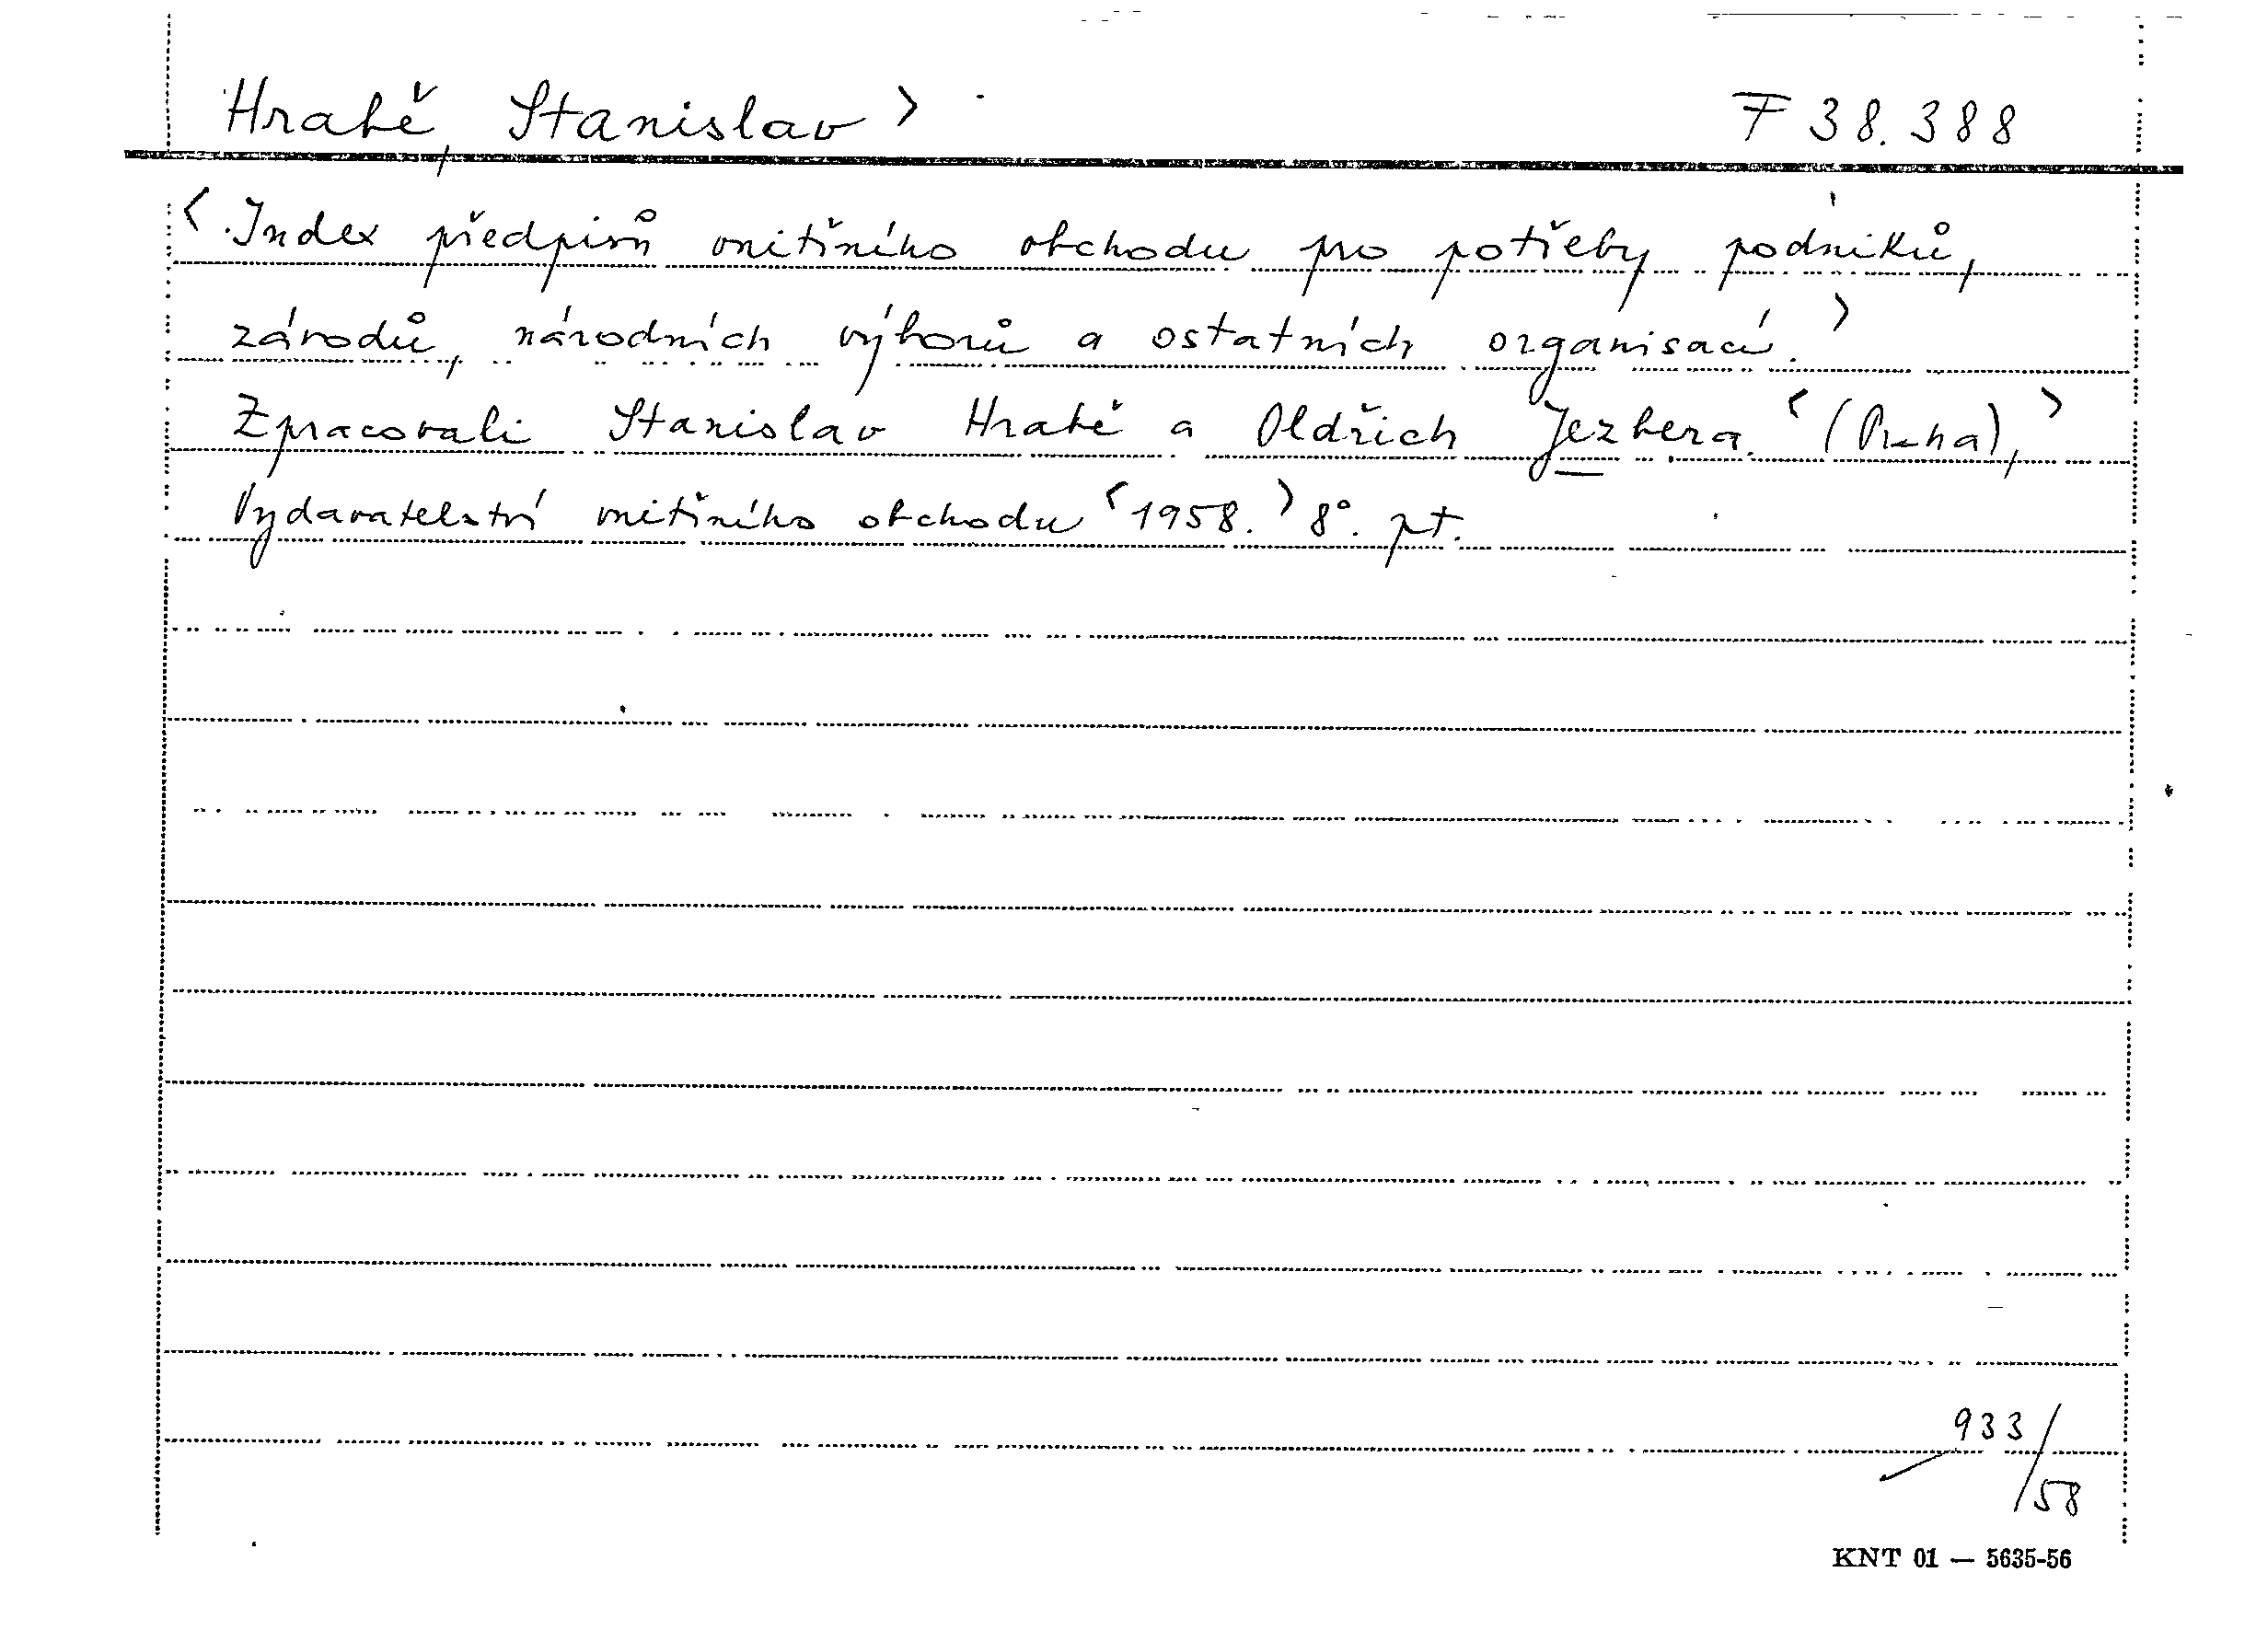 Hrabě, Stanislav > F 38.388
< Index předpisů vnitřního obchodu pro potřeby podniků,
závodů, národních výborů a ostatních organisací. >
Zpracovali Stanislav Hrabě a Oldřich Jezbera. < (Praha), >
Vydavatelství vnitřního obchodu < 1958. > 8°. pt.
933/58
KNT 01 — 5635-56